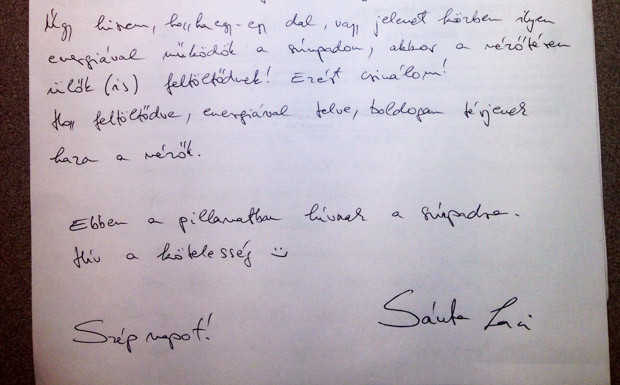 Úgy hiszem, hogy ha egy-egy dal, vagy jelenet közben ilyen
energiával működök a színpadon, akkor a nézőtéren
ülők (is) feltöltődnek! Ezért csinálom!
Hogy feltöltődve, energiával telve, boldogan térjenek
haza a nézők.
Ebben a pillanatban hívnak a színpadra.
Hív a kötelesség ☺
Szép napot!
Sánta Laci